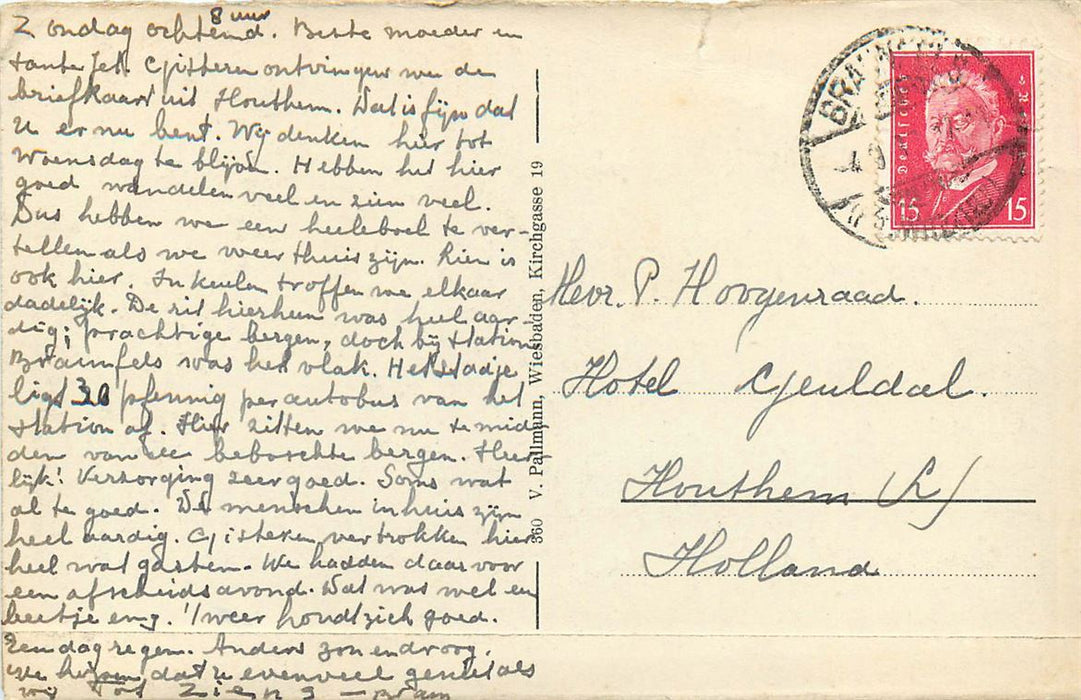 8 uur
Zondag ochtend. Beste moeder en
tante Jet. Gisteren ontvingen we de
briefkaart uit Houthem. Dat is fijn dat
U er nu bent. Wij denken hier tot
Woensdag te blijven. Hebben het hier
goed wandelen veel en zien veel.
Dus hebben we een heeleboel te ver-
tellen als we weer thuis zijn. Rien is
ook hier. In Keulen troffen we elkaar
dadelijk. De rit hierheen was heel aar
dig; prachtige bergen, doch bij station
Braunfels was het vlak. Het stadje
ligt 30 pfennig per autobus van het
station af. Hier zitten we nu te mid-
den van de beboschte bergen. Heer-
lijk! Verzorging zeer goed. Soms wat
al te goed. De menschen in huis zijn
heel aardig. Gisteren vertrokken hier
heel wat gasten. We hadden daarvoor
een afscheidsavond. Dat was wel een
beetje eng. 't weer houdt zich goed.
Een dag regen. Anders zon en droog.
We hopen dat u evenveel geniet als
wij Tot Ziens — Bram
360 V. Pallmann, Wiesbaden, Kirchgasse 19
Deutsches
15 15
Mevr. P. Hoogenraad.
Hotel Geuldal.
Houthem (L)
Holland